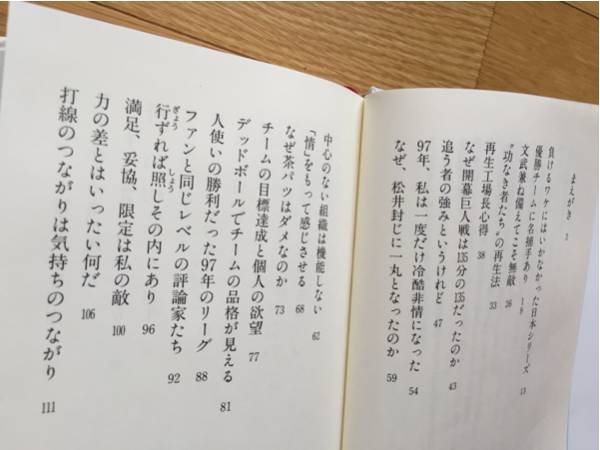 まえがき 1
負けるワケにはいかなかった日本シリーズ 13
優勝チームに名捕手あり 19
文武兼ね備えてこそ無敵 26
"功なき者たち"の再生法 33
再生工場長心得 38
なぜ開幕巨人戦は135分の135だったのか 43
追う者の強みというけれど 47
97年、私は一度だけ冷酷非情になった 54
なぜ、松井封じに一丸となったのか 59
中心のない組織は機能しない 62
「情」をもって感じさせる 68
なぜ茶パツはダメなのか 73
チームの目標達成と個人の欲望 77
デッドボールでチームの品格が見える 81
人使いの勝利だった97年のリーグ 88
ファンと同じレベルの評論家たち 92
行ずれば照しその内にあり 96
ぎょう しょう
満足、妥協、限定は私の敵 100
力の差とはいったい何だ 106
打線のつながりは気持ちのつながり 111